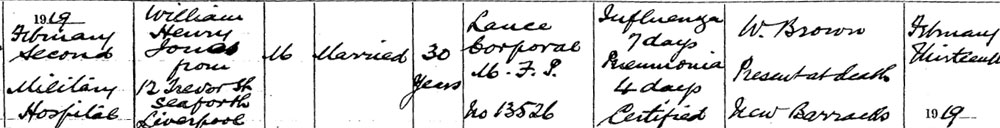 1919
February
Second
Military
Hospital
William
Henry
Jones
from
12 Trevor St
Seaforth
Liverpool
M
Married
30
Years
Lance
Corporal
M. F. P.
No 13526
Influenza
7 days
Pneumonia
4 days
Certified
W. Brown
Present at death
New Barracks
February
Thirteenth
1919